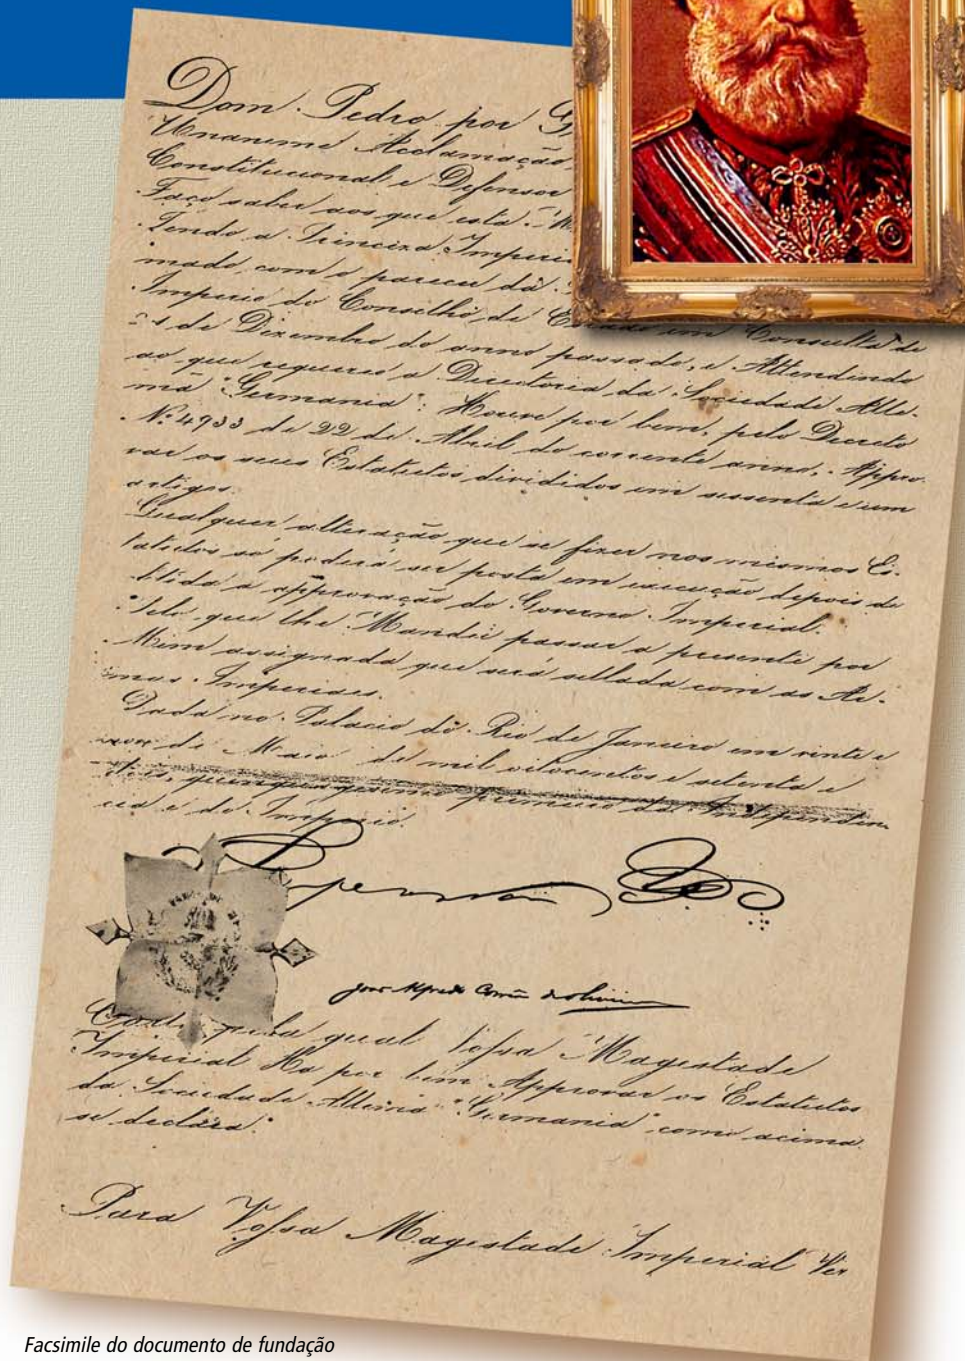 Dom Pedro por G
Unanime Acclamação
Constitucional e Defensor
Faço saber aos que esta
Tendo a Princeza Imperi
mado com o parecer da
Imperio do Conselho de Estado em Consulta de
de Dezembro do anno passado, e Attendendo
ao que requereu a Directoria da Sociedade Alle-
mã "Germania": Houve por bem, pelo Decreto
Nº 4933 de 22 de Abril do corrente anno, Appro-
var os seus Estatutos divididos em sessenta e um
artigos.
Qualquer alteração que se fizer nos mesmos Es-
tatutos só poderá ser posta em execução depois de
obtida a approvação do Governo Imperial.
Pelo que lhe Mandei passar a presente por
Mim assignada que será sellada com as Ar-
mas Imperiaes.
Dada no Palacio do Rio de Janeiro em vinte e
de Maio de mil oitocentos e setenta e
dois, quinquagesimo primeiro da Independen-
cia e do Imperio.
João Alfredo Corrêa de Oliveira
Carta pela qual Vossa Magestade
Imperial Ha por bem Approvar os Estatutos
da Sociedade Allemã "Germania" como acima
se declara.
Para Vossa Magestade Imperial Ver
Facsimile do documento de fundação